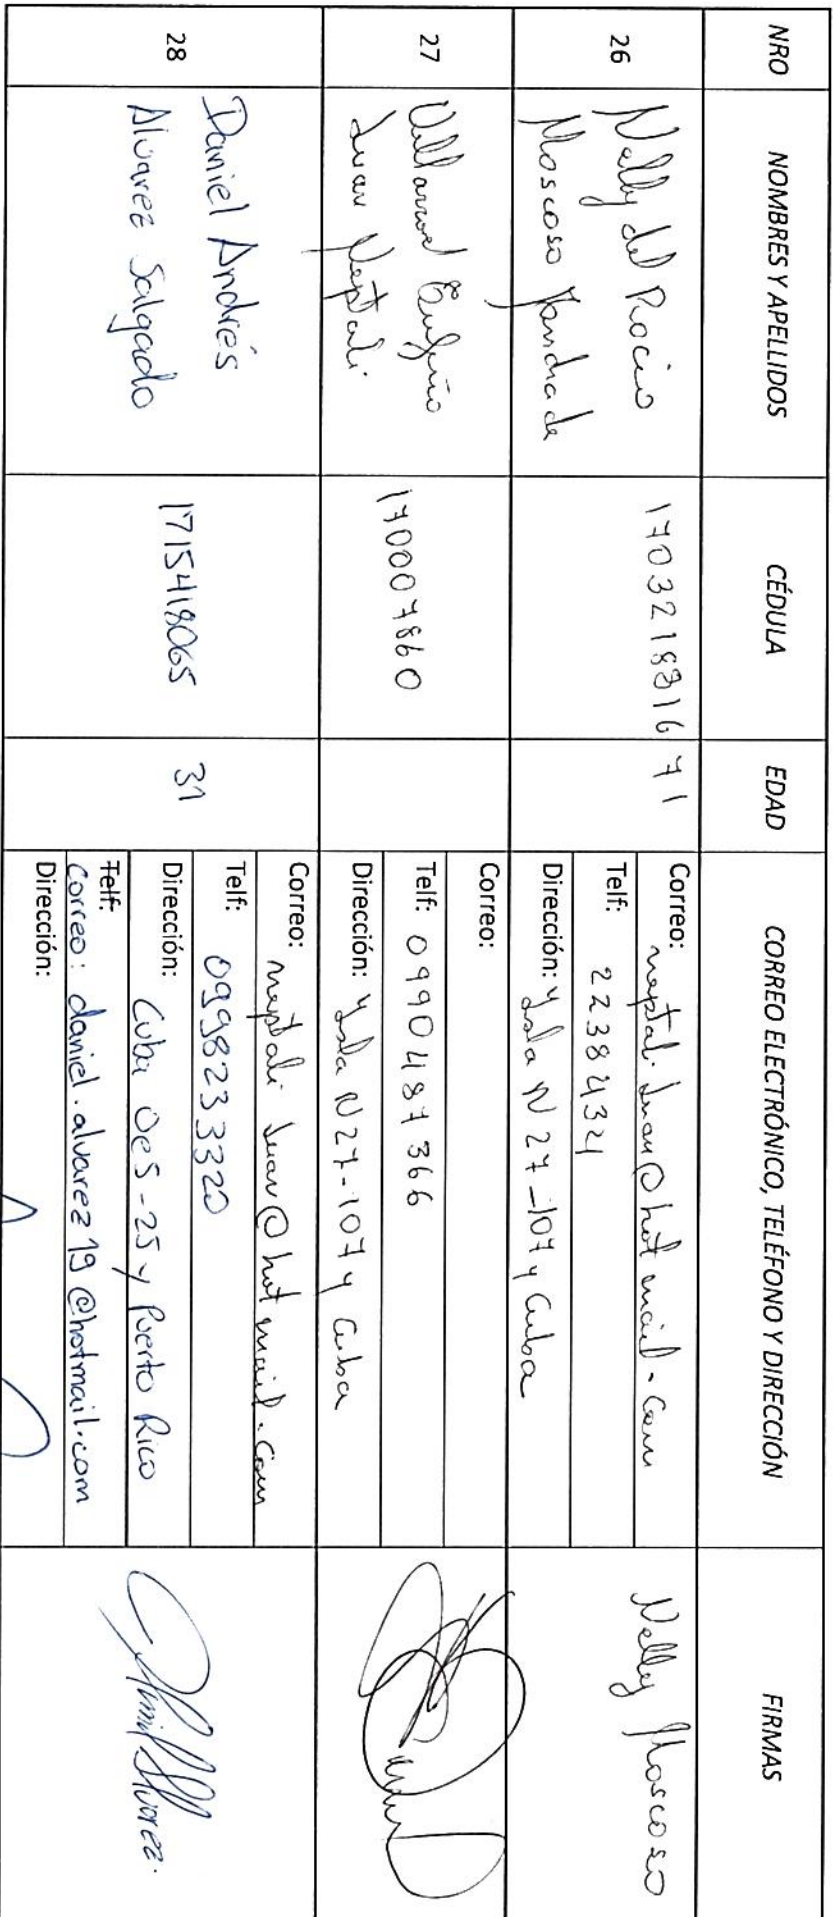 NRO NOMBRES Y APELLIDOS CÉDULA EDAD CORREO ELECTRÓNICO, TELÉFONO Y DIRECCIÓN FIRMAS
26
Nelly del Rocio
Moscoso Jandrade
1703218316
71
Correo: neptali.Juan@hotmail.com
Telf: 2238434
Dirección: Ysla N27-107 y Cuba
Nelly Moscoso
27
Villarroel Eugenio
Juan Neptali
170007860
Correo:
Telf: 0990487366
Dirección: Ysla N27-107 y Cuba
28
Daniel Andrés
Alvarez Salgado
1715418065
31
Correo: neptali Juan@hotmail.com
Telf: 0998233320
Dirección: Cuba Oe5-25 y Puerto Rico
Telf:
Correo: daniel.alvarez19@hotmail.com
Dirección: